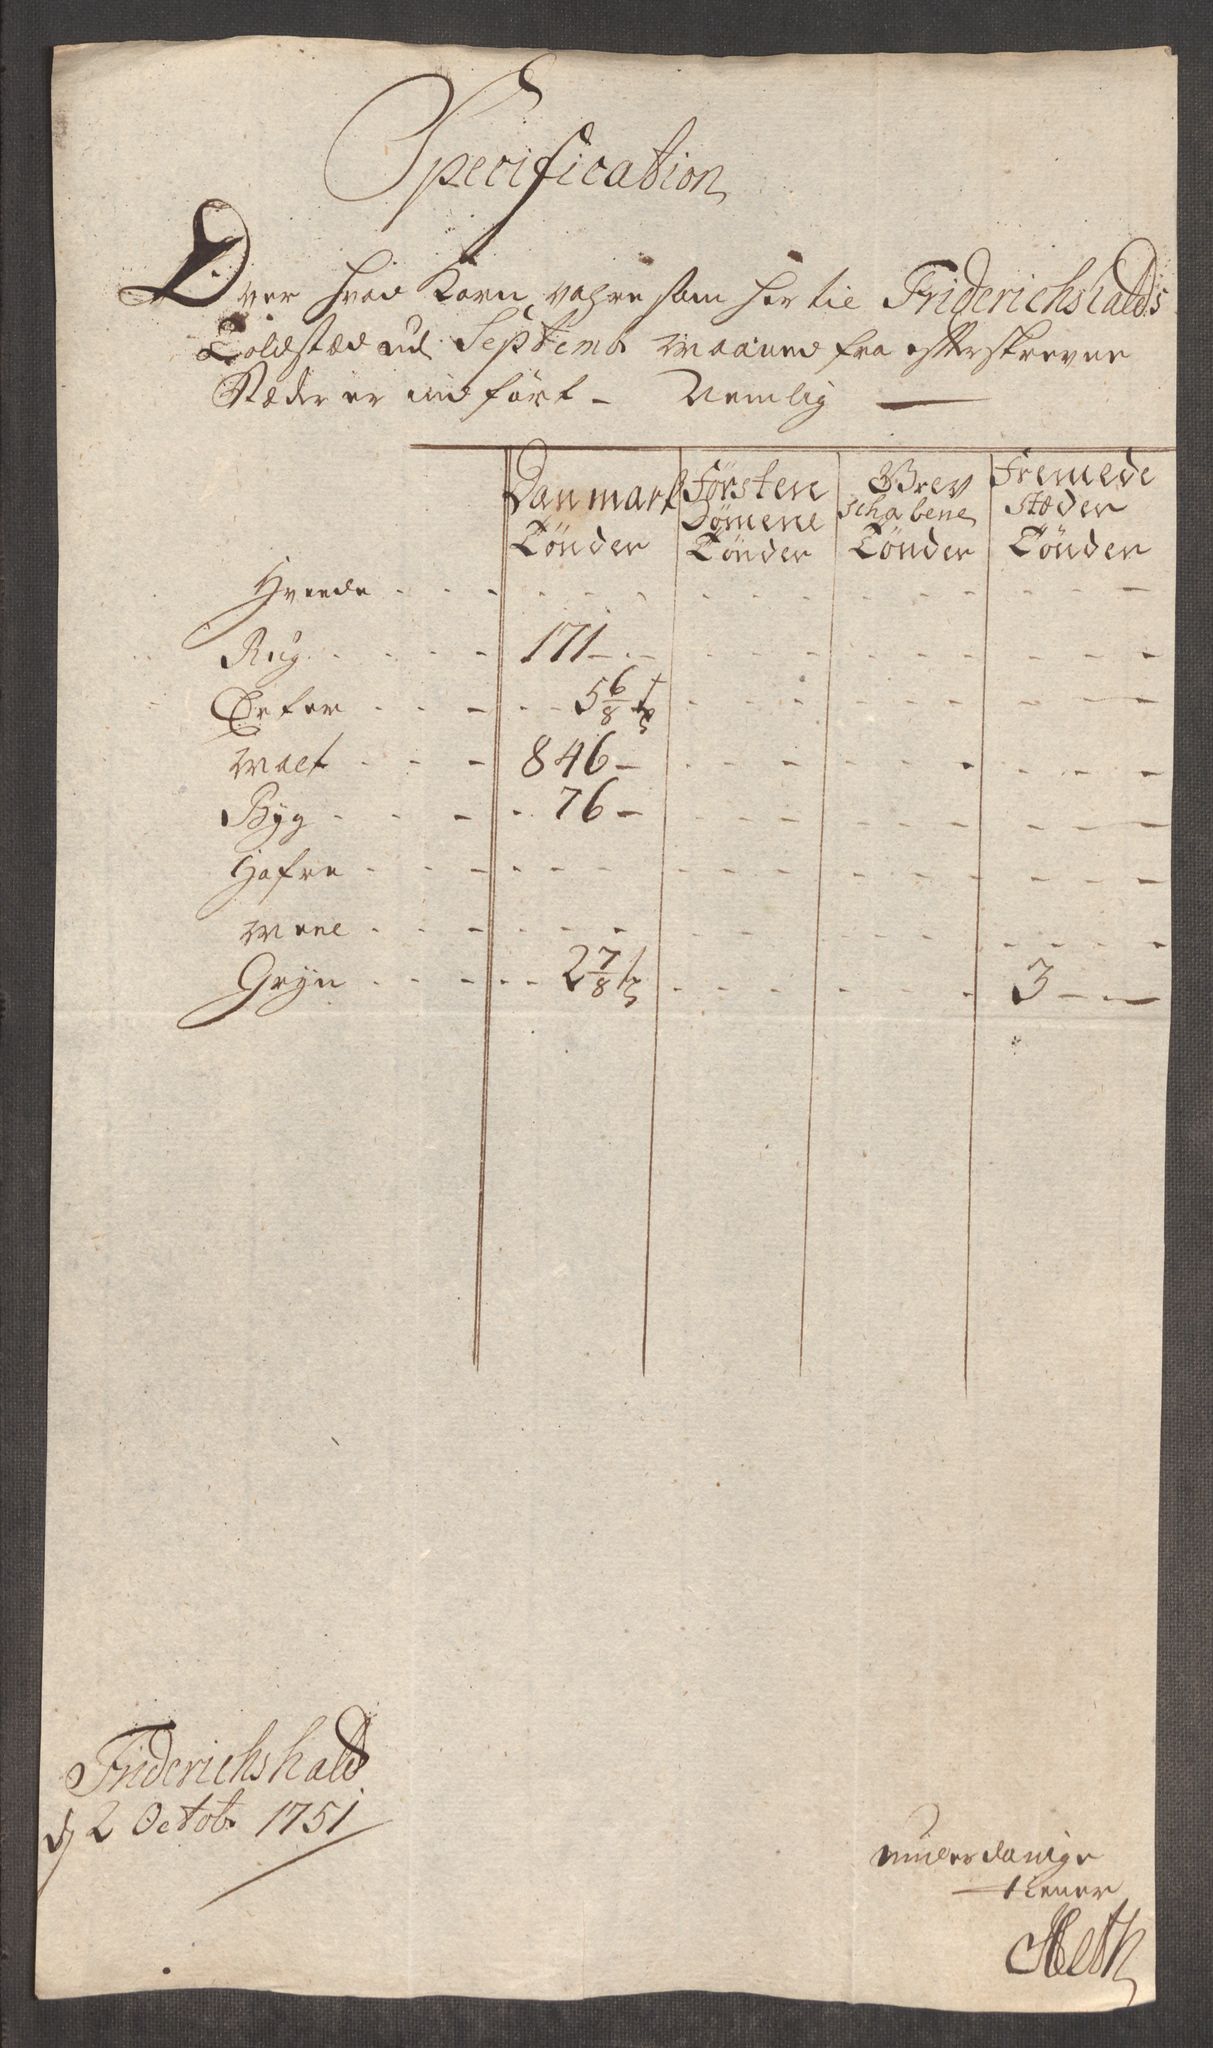 Specification
Over hvad Korn vahre som her til Friderichshalds
Toldstæd udi Septembr Maaned fra efterskrevne
Stæder er indført - Nemlig
Danmark Førsten Grev Fremede
Dømene schabene stæder
Tønder Tønder Tønder Tønder
Hveede
Rug 171
Erter 5 6/8
Malt 846
Byg 76
Hafre
Meel
Gryn 2 7/8 3
Friderichshald
d 2 Octobr 1751
underdanige
tiener